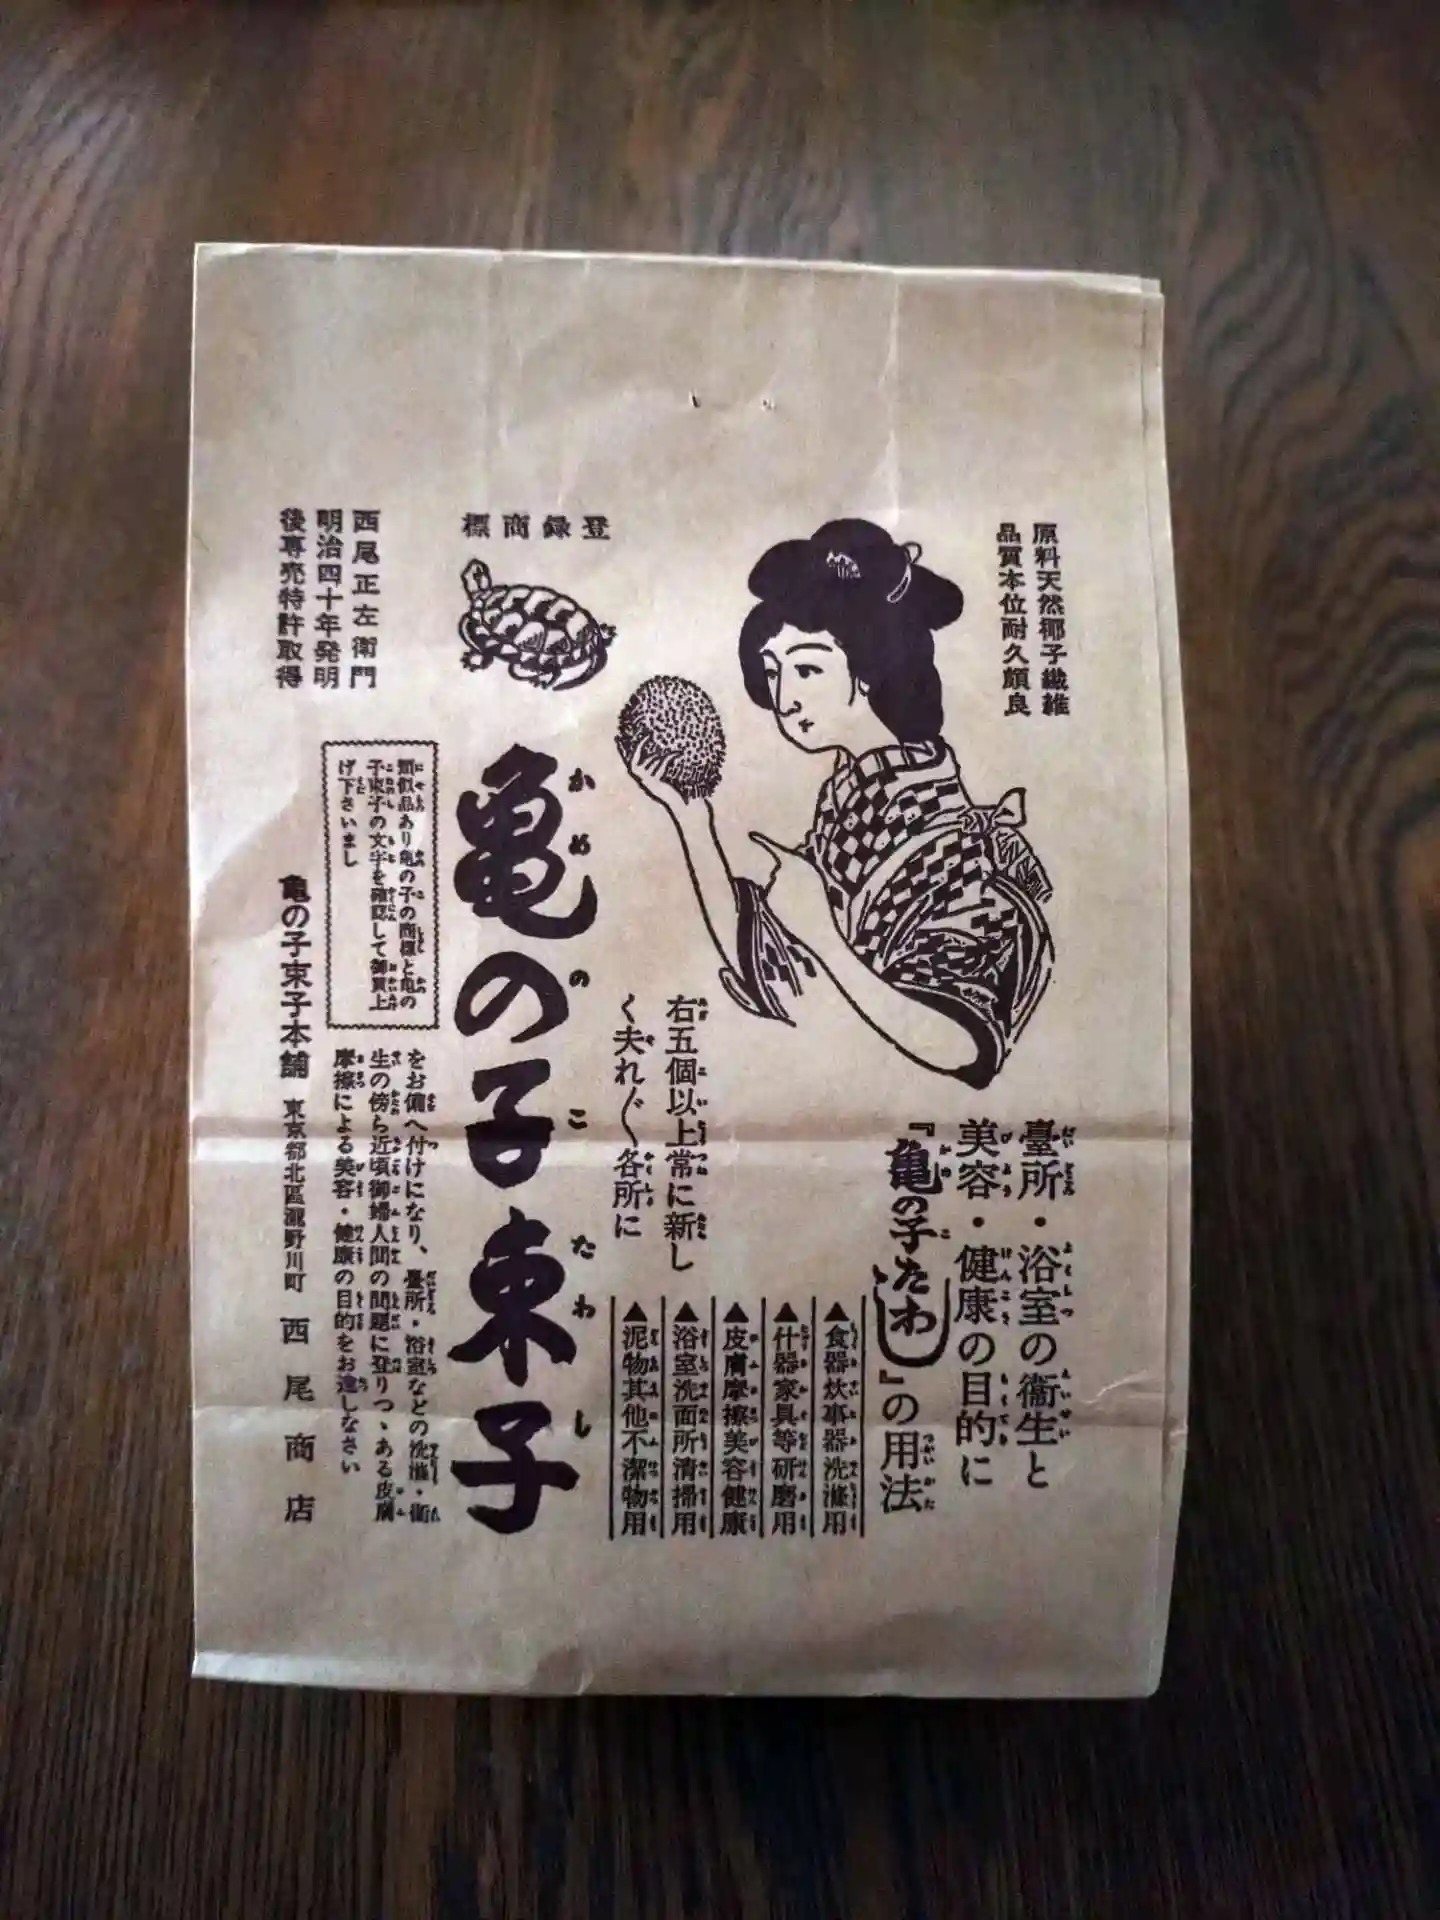 原料天然椰子繊維
品質本位耐久頗良
臺所・浴室の衞生と
美容・健康の目的に
『亀の子たわし』の用法
▲食器炊事器洗滌用
▲什器家具等研磨用
▲皮膚摩擦美容健康
▲浴室洗面所清掃用
▲泥物其他不潔物用
右五個以上常に新し
く夫れ〴〵各所に
をお備へ付けになり、臺所・浴室などの洗滌・衞
生の傍ら近頃御婦人間の問題に登りつゝある皮膚
摩擦による美容・健康の目的をお達しなさい
登録商標
亀の子束子
かめのこたわし
類似品あり亀の子の商標と亀の
子束子の文字を確認して御買上
げ下さいまし
西尾正左衛門
明治四十年発明
後専売特許取得
亀の子束子本舗 東京都北區瀧野川町 西尾商店